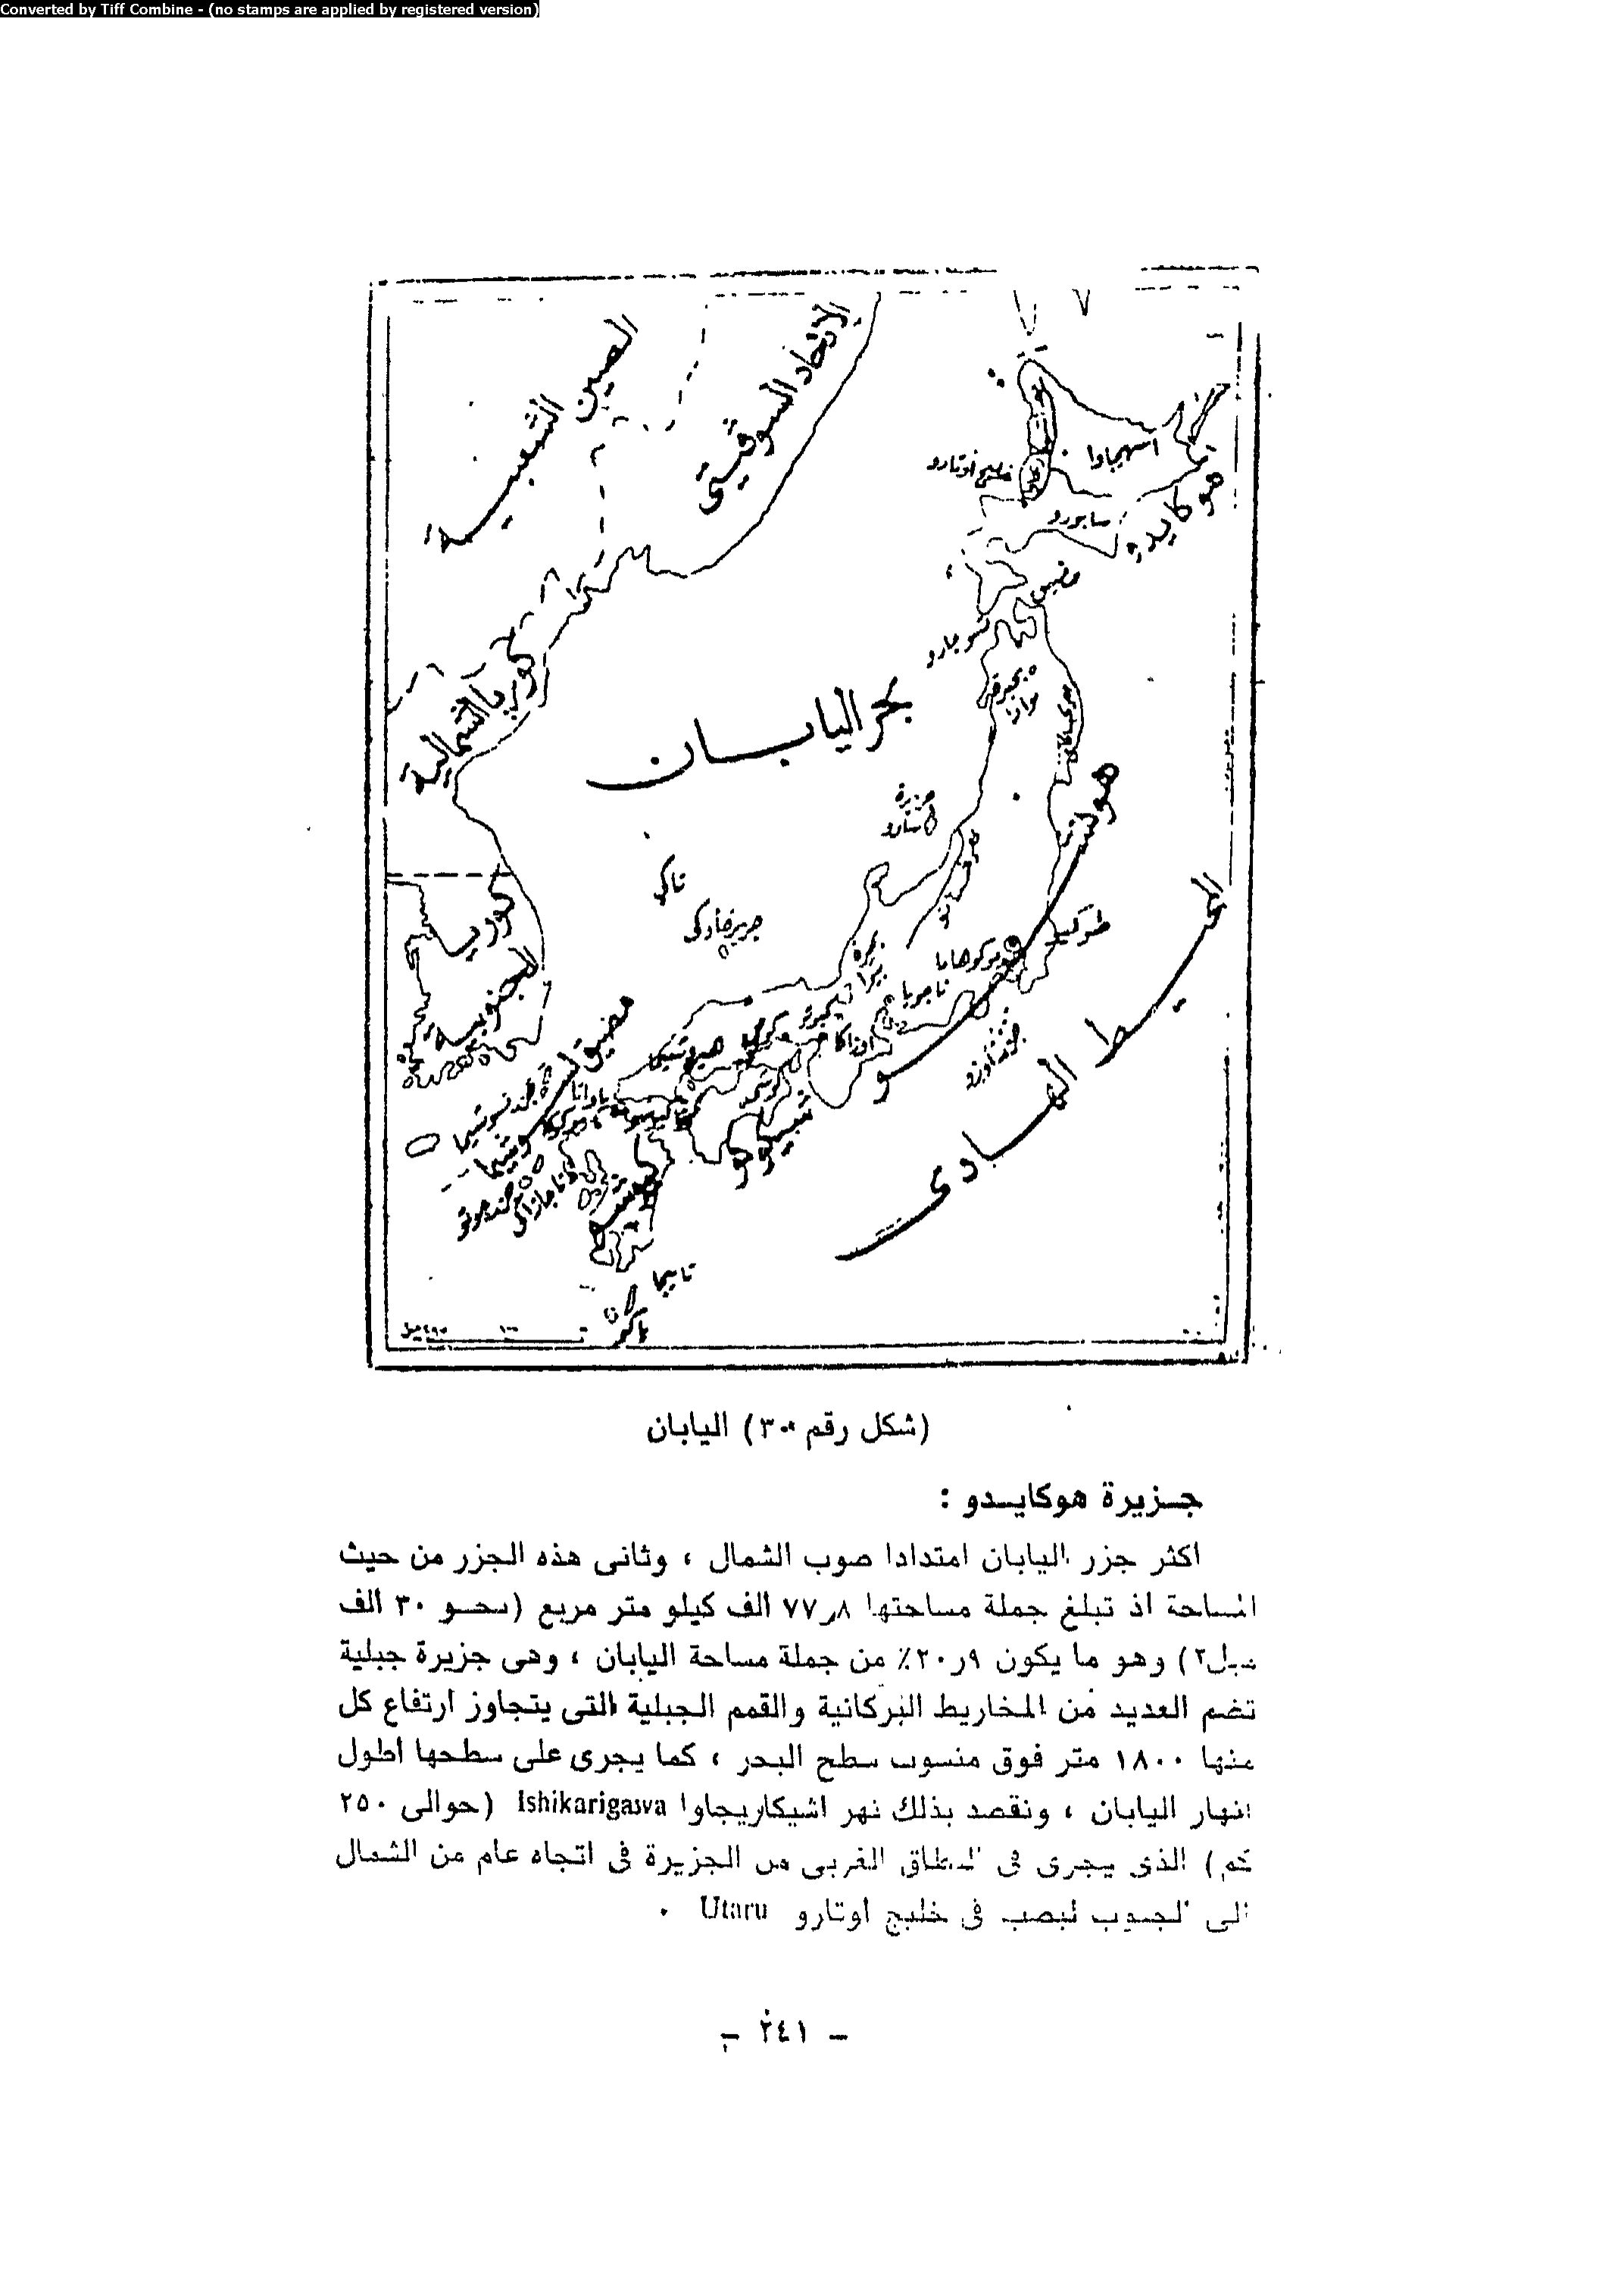 Converted by Tiff Combine - (no stamps are applied by registered version)
الصين الشعبية
الاتحاد السوفيتى
اسهيجاوا
خليج اوتارو
هوكايدو
سابورو
مضيق
تسوجارو
كوريا الشمالية
بحر اليابان
هونشو
جزيرة
تاكى
كوريا الجنوبية
طوكيو
يوكوهاما
ناجويا
بحيرة
بيوا
اوزاكا
المحيط الهادى
مضيق تسوشيما
شيكوكو
ناجازاكى
كيوشو
(شكل رقم ٣٠) اليابان
جزيرة هوكايدو :
اكثر جزر اليابان امتدادا صوب الشمال ، وثانى هذه الجزر من حيث
المساحة اذ تبلغ جملة مساحتها ٧٧٫٨ الف كيلو متر مربع (نحو ٣٠ الف
ميل٢) وهو ما يكون ٢٠٫٩٪ من جملة مساحة اليابان ، وهى جزيرة جبلية
تضم العديد من المخاريط البركانية والقمم الجبلية التى يتجاوز ارتفاع كل
منها ١٨٠٠ متر فوق منسوب سطح البحر ، كما يجرى على سطحها أطول
انهار اليابان ، ونقصد بذلك نهر اشيكاريجاوا Ishikarigawa (حوالى ٢٥٠
كم) الذى يجرى فى النطاق الغربى من الجزيرة فى اتجاه عام من الشمال
الى الجنوب ليصب فى خليج اوتارو Utaru .
- ٢٤١ -